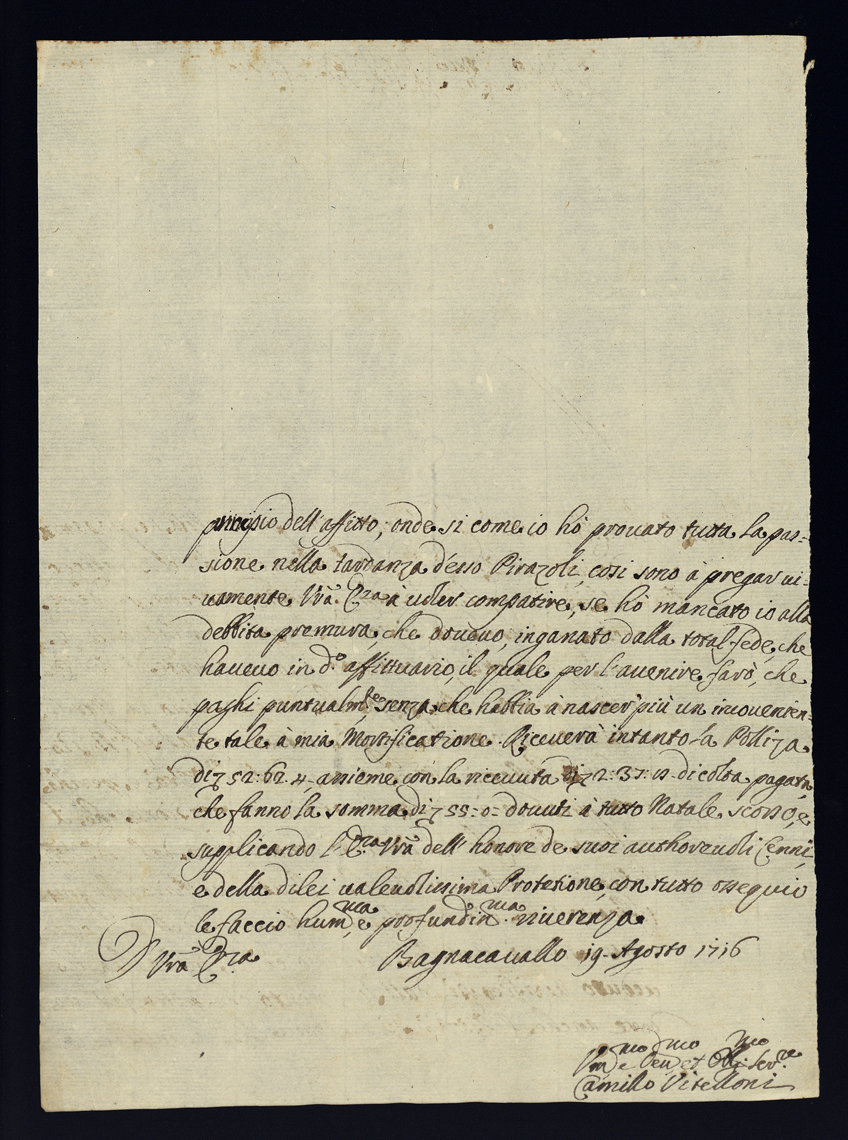 principio dell'affitto, onde si come io hò prouato tutta la pas=
sione nella tardanza d'esso Pirazoli, così sono à pregar ui=
uamente Vrã Ecc.za à uoler compatire, se hò mancato io alla
debbita premura, che doueuo, inganato dalla total fede, che
haueuo in d.º affittuario, il quale per l'auenire farò, che
paghi puntualm.te senza, che habbia à nascer più un incouenien=
te tale à mia Mortificatione. Riceuerà intanto la Polliza
di 52:62:4 assieme con la riceuuta di 2:37: di colta pagata,
che fanno la somma di 55=0= douuti à tutto Natale scorso, e
supplicando l'Ecc.za Vrã dell'honore de suoi authoreuoli Cenni,
e della di lei ualeuolissima Protetione, con tutto ossequio
le faccio hum.ma, e profundis.ma riuerenza
D Vrã Ecc.za Bagnacauallo 19 Agosto 1716
Um.mo Deu.mo et Obl.mo Ser.re
Camillo Vitelloni